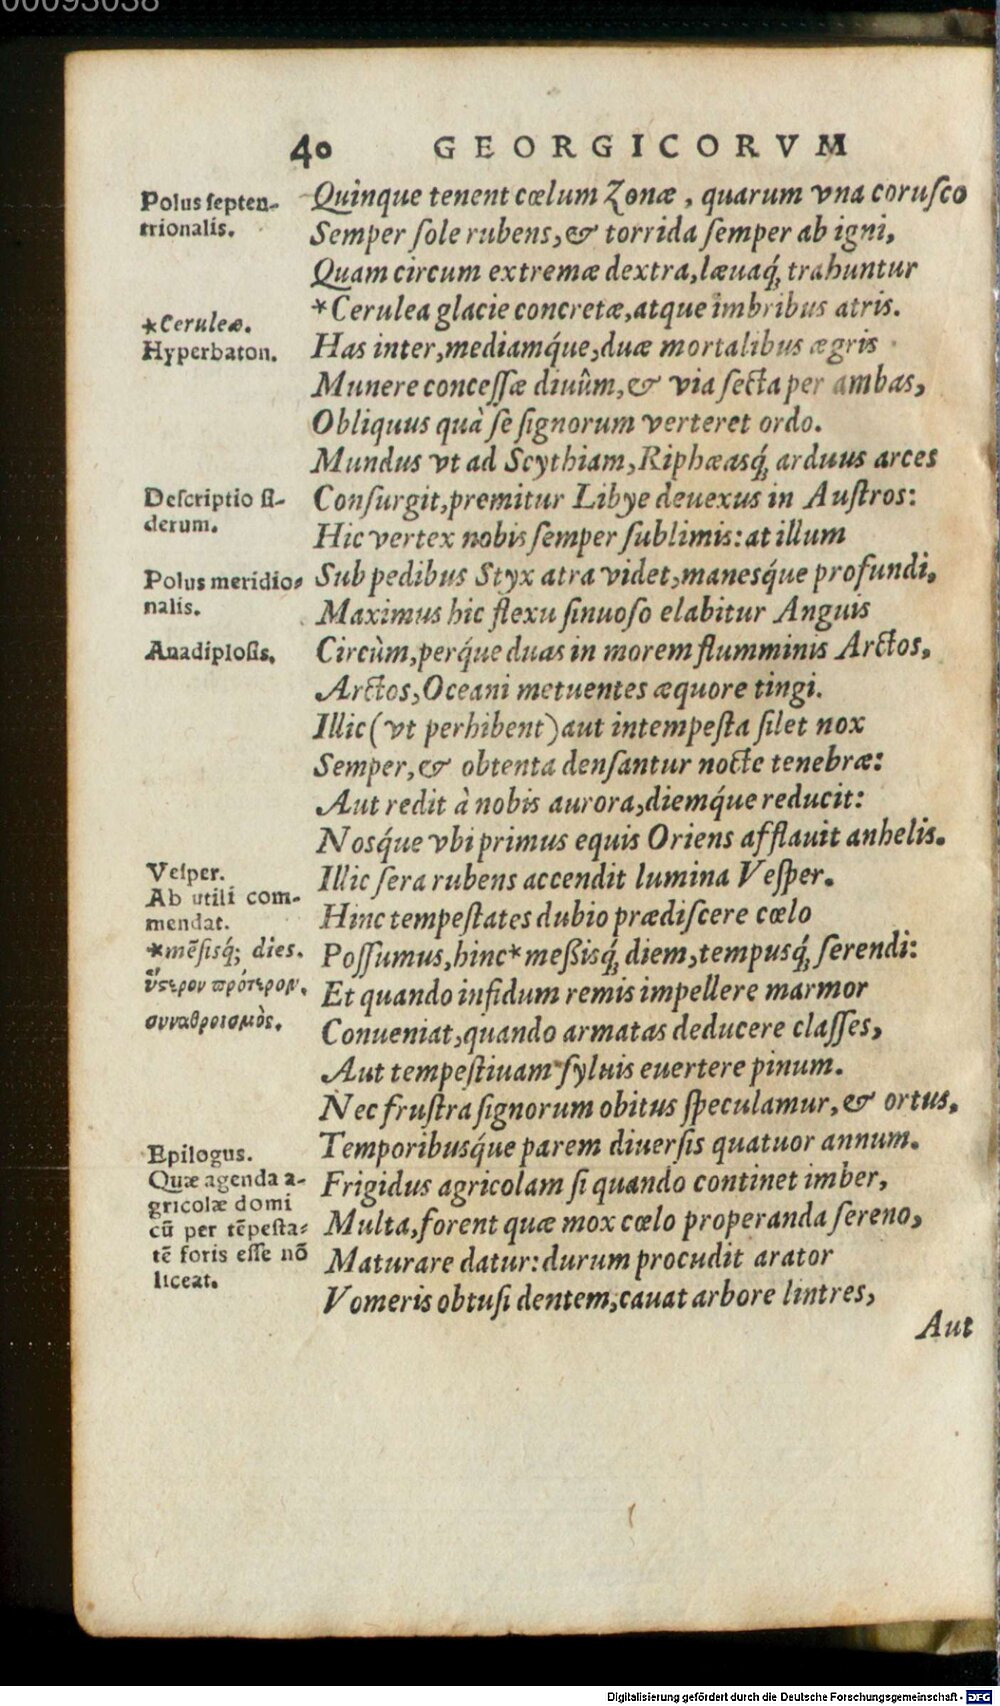 00093038
40 GEORGICORVM
Polus ſepten-
trionalis.
*Ceruleæ.
Hyperbaton.
Deſcriptio ſi-
derum.
Polus meridio-
nalis.
Anadiploſis.
Veſper.
Ab utili com-
mendat.
*mēſisq́; dies.
ὕστερον πρότερον.
συναθροισμὸς.
Epilogus.
Quæ agenda a-
gricolæ domi
cū per tēpeſta-
tē foris eſſe nō
liceat.
Quinque tenent cœlum Zonæ, quarum vna coruſco
Semper ſole rubens, & torrida ſemper ab igni,
Quam circum extremæ dextra, læuaq́; trahuntur
*Cerulea glacie concretæ, atque imbribus atris.
Has inter, mediamq́ue, duæ mortalibus ægris
Munere conceſſæ diuûm, & via ſecta per ambas,
Obliquus quà ſe ſignorum verteret ordo.
Mundus vt ad Scythiam, Riphæasq́; arduus arces
Conſurgit, premitur Libye deuexus in Auſtros:
Hic vertex nobis ſemper ſublimis: at illum
Sub pedibus Styx atra videt, manesq́ue profundi.
Maximus hic flexu ſinuoſo elabitur Anguis
Circùm, perq́ue duas in morem flumminis Arctos,
Arctos, Oceani metuentes æquore tingi.
Illic (vt perhibent) aut intempeſta ſilet nox
Semper, & obtenta denſantur nocte tenebræ:
Aut redit à nobis aurora, diemq́ue reducit:
Nosq́ue vbi primus equis Oriens afflauit anhelis.
Illic ſera rubens accendit lumina Veſper.
Hinc tempeſtates dubio prædiſcere cœlo
Poſſumus, hinc *meßisq́; diem, tempusq́; ſerendi:
Et quando infidum remis impellere marmor
Conueniat, quando armatas deducere claſſes,
Aut tempeſtiuam ſyluis euertere pinum.
Nec fruſtra ſignorum obitus ſpeculamur, & ortus,
Temporibusq́ue parem diuerſis quatuor annum.
Frigidus agricolam ſi quando continet imber,
Multa, forent quæ mox cœlo properanda ſereno,
Maturare datur: durum procudit arator
Vomeris obtuſi dentem, cauat arbore lintres,
Aut
Digitalisierung gefördert durch die Deutsche Forschungsgemeinschaft - DFG